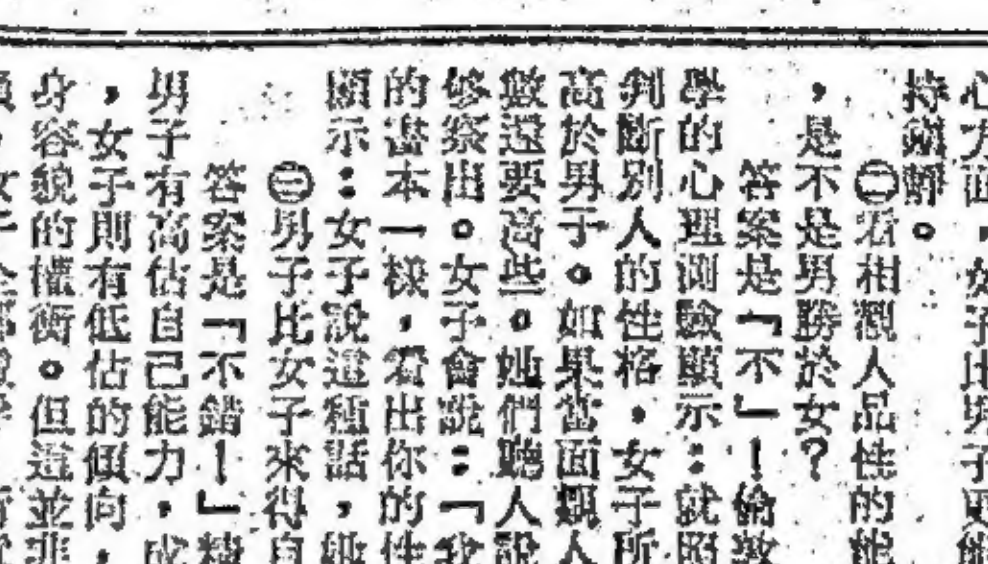 心方面，女子比男子更能
持鎮靜。
㊁看相觀人品性的能
，是不是男勝於女？
答案是「不」！倫敦
學的心理測驗顯示：就照
判斷別人的性格，女子所
高於男子。如果當面觀人
數還要高些。她們聽人說
够察出。女子會說：「我
的書本一樣，看出你的性
顯示：女子說這種話，她
㊂男子比女子來得自
答案是「不錯！」精
男子有高估自己能力，成
，女子則有低估的傾向，
身容貌的權衡。但這並非